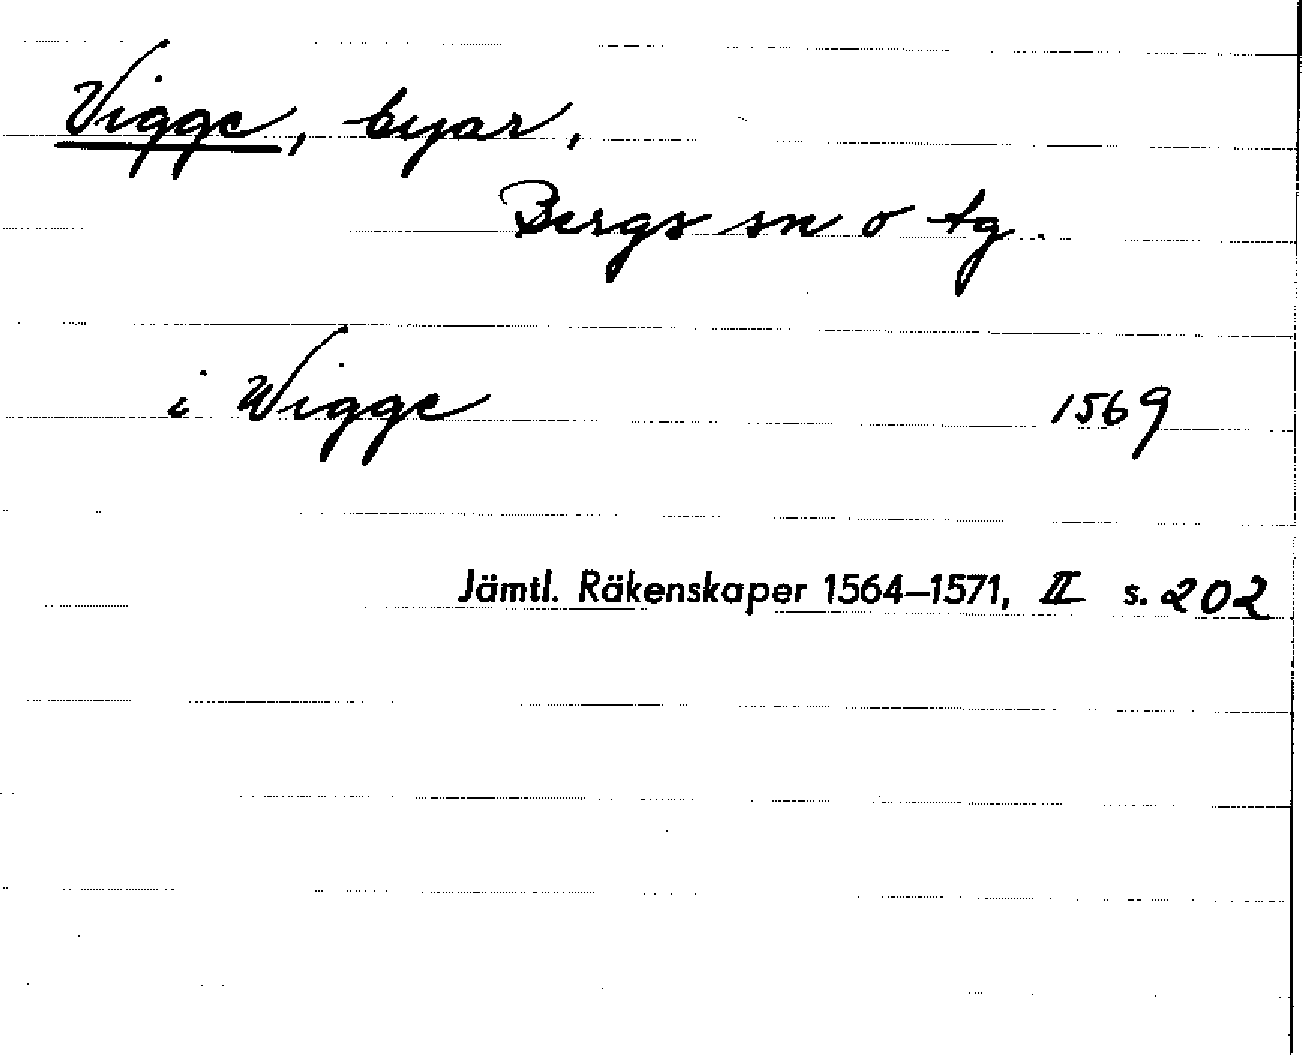 Vigge, byar,
Bergs sn o tg.
i Wigge 1569
Jämtl. Räkenskaper 1564–1571, II s. 202